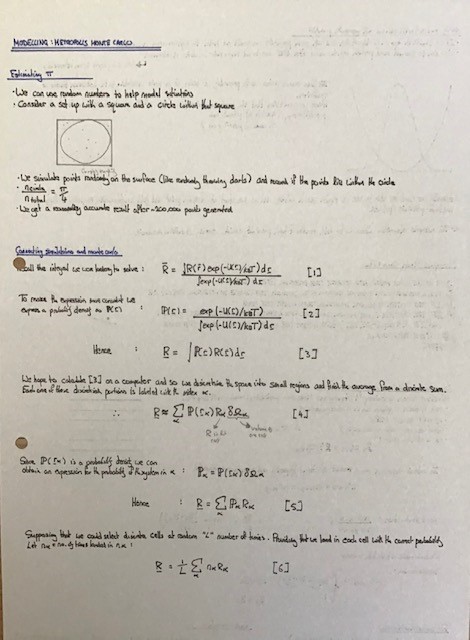 MODELLING : METROPOLIS MONTE CARLO
Estimating π
· We can use random numbers to help model situations
· Consider a set up with a square and a circle within that square
· We simulate points randomly on the surface (like randomly throwing darts) and record if the points lie within the circle
· n circle / n total = π/4
· We get a reasonably accurate result after ~200,000 points generated
Connecting simulations and monte carlo
Recall the integral we can belong to solve : R̄ = ∫R(r) exp(-U(r)/kBT) dr / ∫exp(-U(r)/kBT) dr [1]
To make the expression more convenient we
express a probability density as P(r) : P(r) = exp(-U(r)/kBT) / ∫exp(-U(r)/kBT) dr [2]
Hence : R = ∫P(r)R(r)dr [3]
We hope to calculate [3] on a computer and so we discretise the space into small regions and find the average from a discrete sum.
Each one of these discretised portions is labeled with the index α.
∴ R ≈ Σα P(rα) Rα δΩα [4]
Since P(rα) is a probability density we can
obtain an expression for the probability of the system in α : Pα = P(rα) δΩα
Hence : R = Σα Pα Rα [5]
Supposing that we could select discrete cells at random "L" number of times. Providing that we land in each cell with the correct probability.
Let nα = no. of times landed in α :
R = 1/L Σα nα Rα [6]